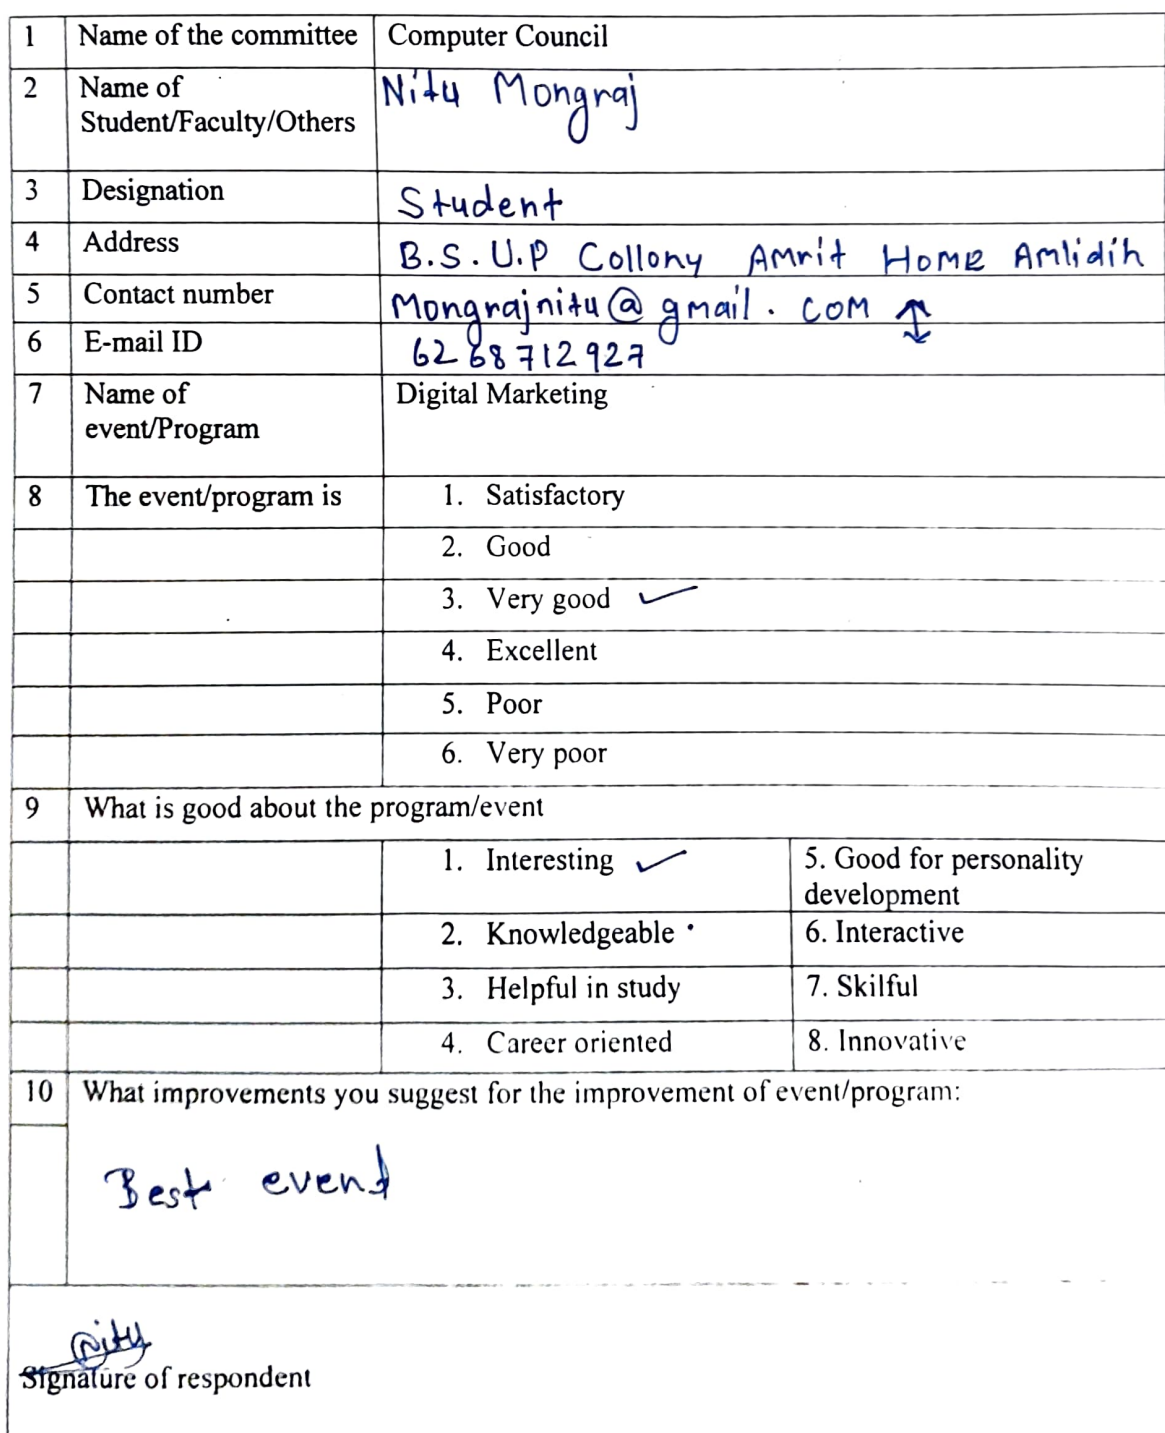 1 Name of the committee Computer Council
2 Name of Nitu Mongraj
Student/Faculty/Others
3 Designation Student
4 Address B.S.U.P Collony Amrit Home Amlidih
5 Contact number Mongrajnitu@gmail.com ↕
6 E-mail ID 6268712927
7 Name of Digital Marketing
event/Program
8 The event/program is 1. Satisfactory
2. Good
3. Very good ✓
4. Excellent
5. Poor
6. Very poor
9 What is good about the program/event
1. Interesting ✓ 5. Good for personality
development
2. Knowledgeable 6. Interactive
3. Helpful in study 7. Skilful
4. Career oriented 8. Innovative
10 What improvements you suggest for the improvement of event/program:
Best event
Nitu
Signature of respondent